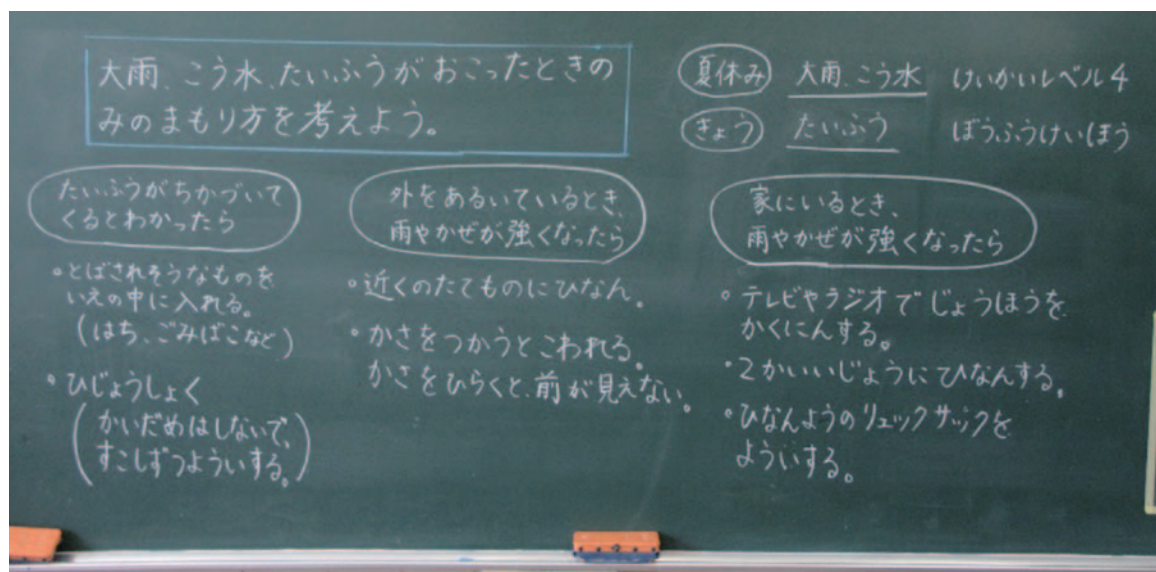 大雨、こう水、たいふうがおこったときの
みのまもり方を考えよう。
夏休み 大雨、こう水 けいかいレベル4
きょう たいふう ぼうふうけいほう
たいふうがちかづいて
くるとわかったら
・とばされそうなものを
いえの中に入れる。
(はち、ごみばこなど)
・ひじょうしょく
(かいだめはしないで、
すこしずつよういする。)
外をあるいているとき、
雨やかぜが強くなったら
・近くのたてものにひなん。
・かさをつかうとこわれる。
かさをひらくと、前が見えない。
家にいるとき、
雨やかぜが強くなったら
・テレビやラジオでじょうほうを
かくにんする。
・2かいいじょうにひなんする。
・ひなんようのリュックサックを
よういする。